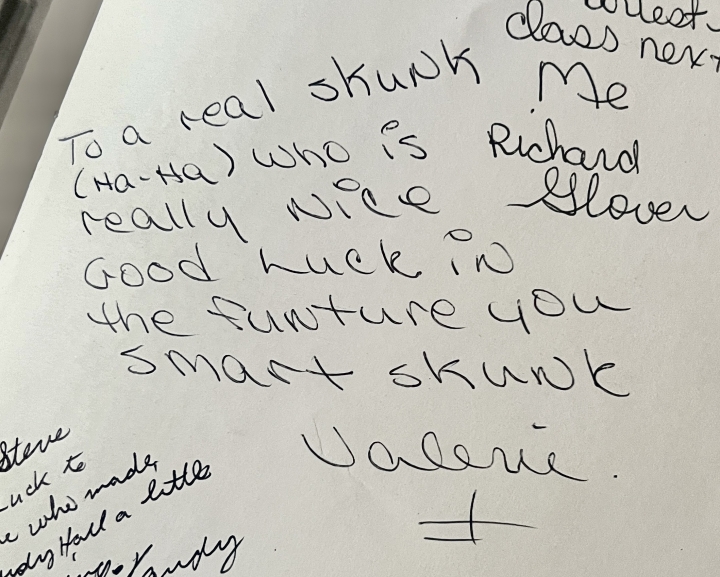 class next
Me
Richard
Glover
To a real skunk
(Ha-Ha) who is
really Nice
Good Luck in
the funture you
smart skunk
Valerie.
Steve
Luck to
who made
Hall a little